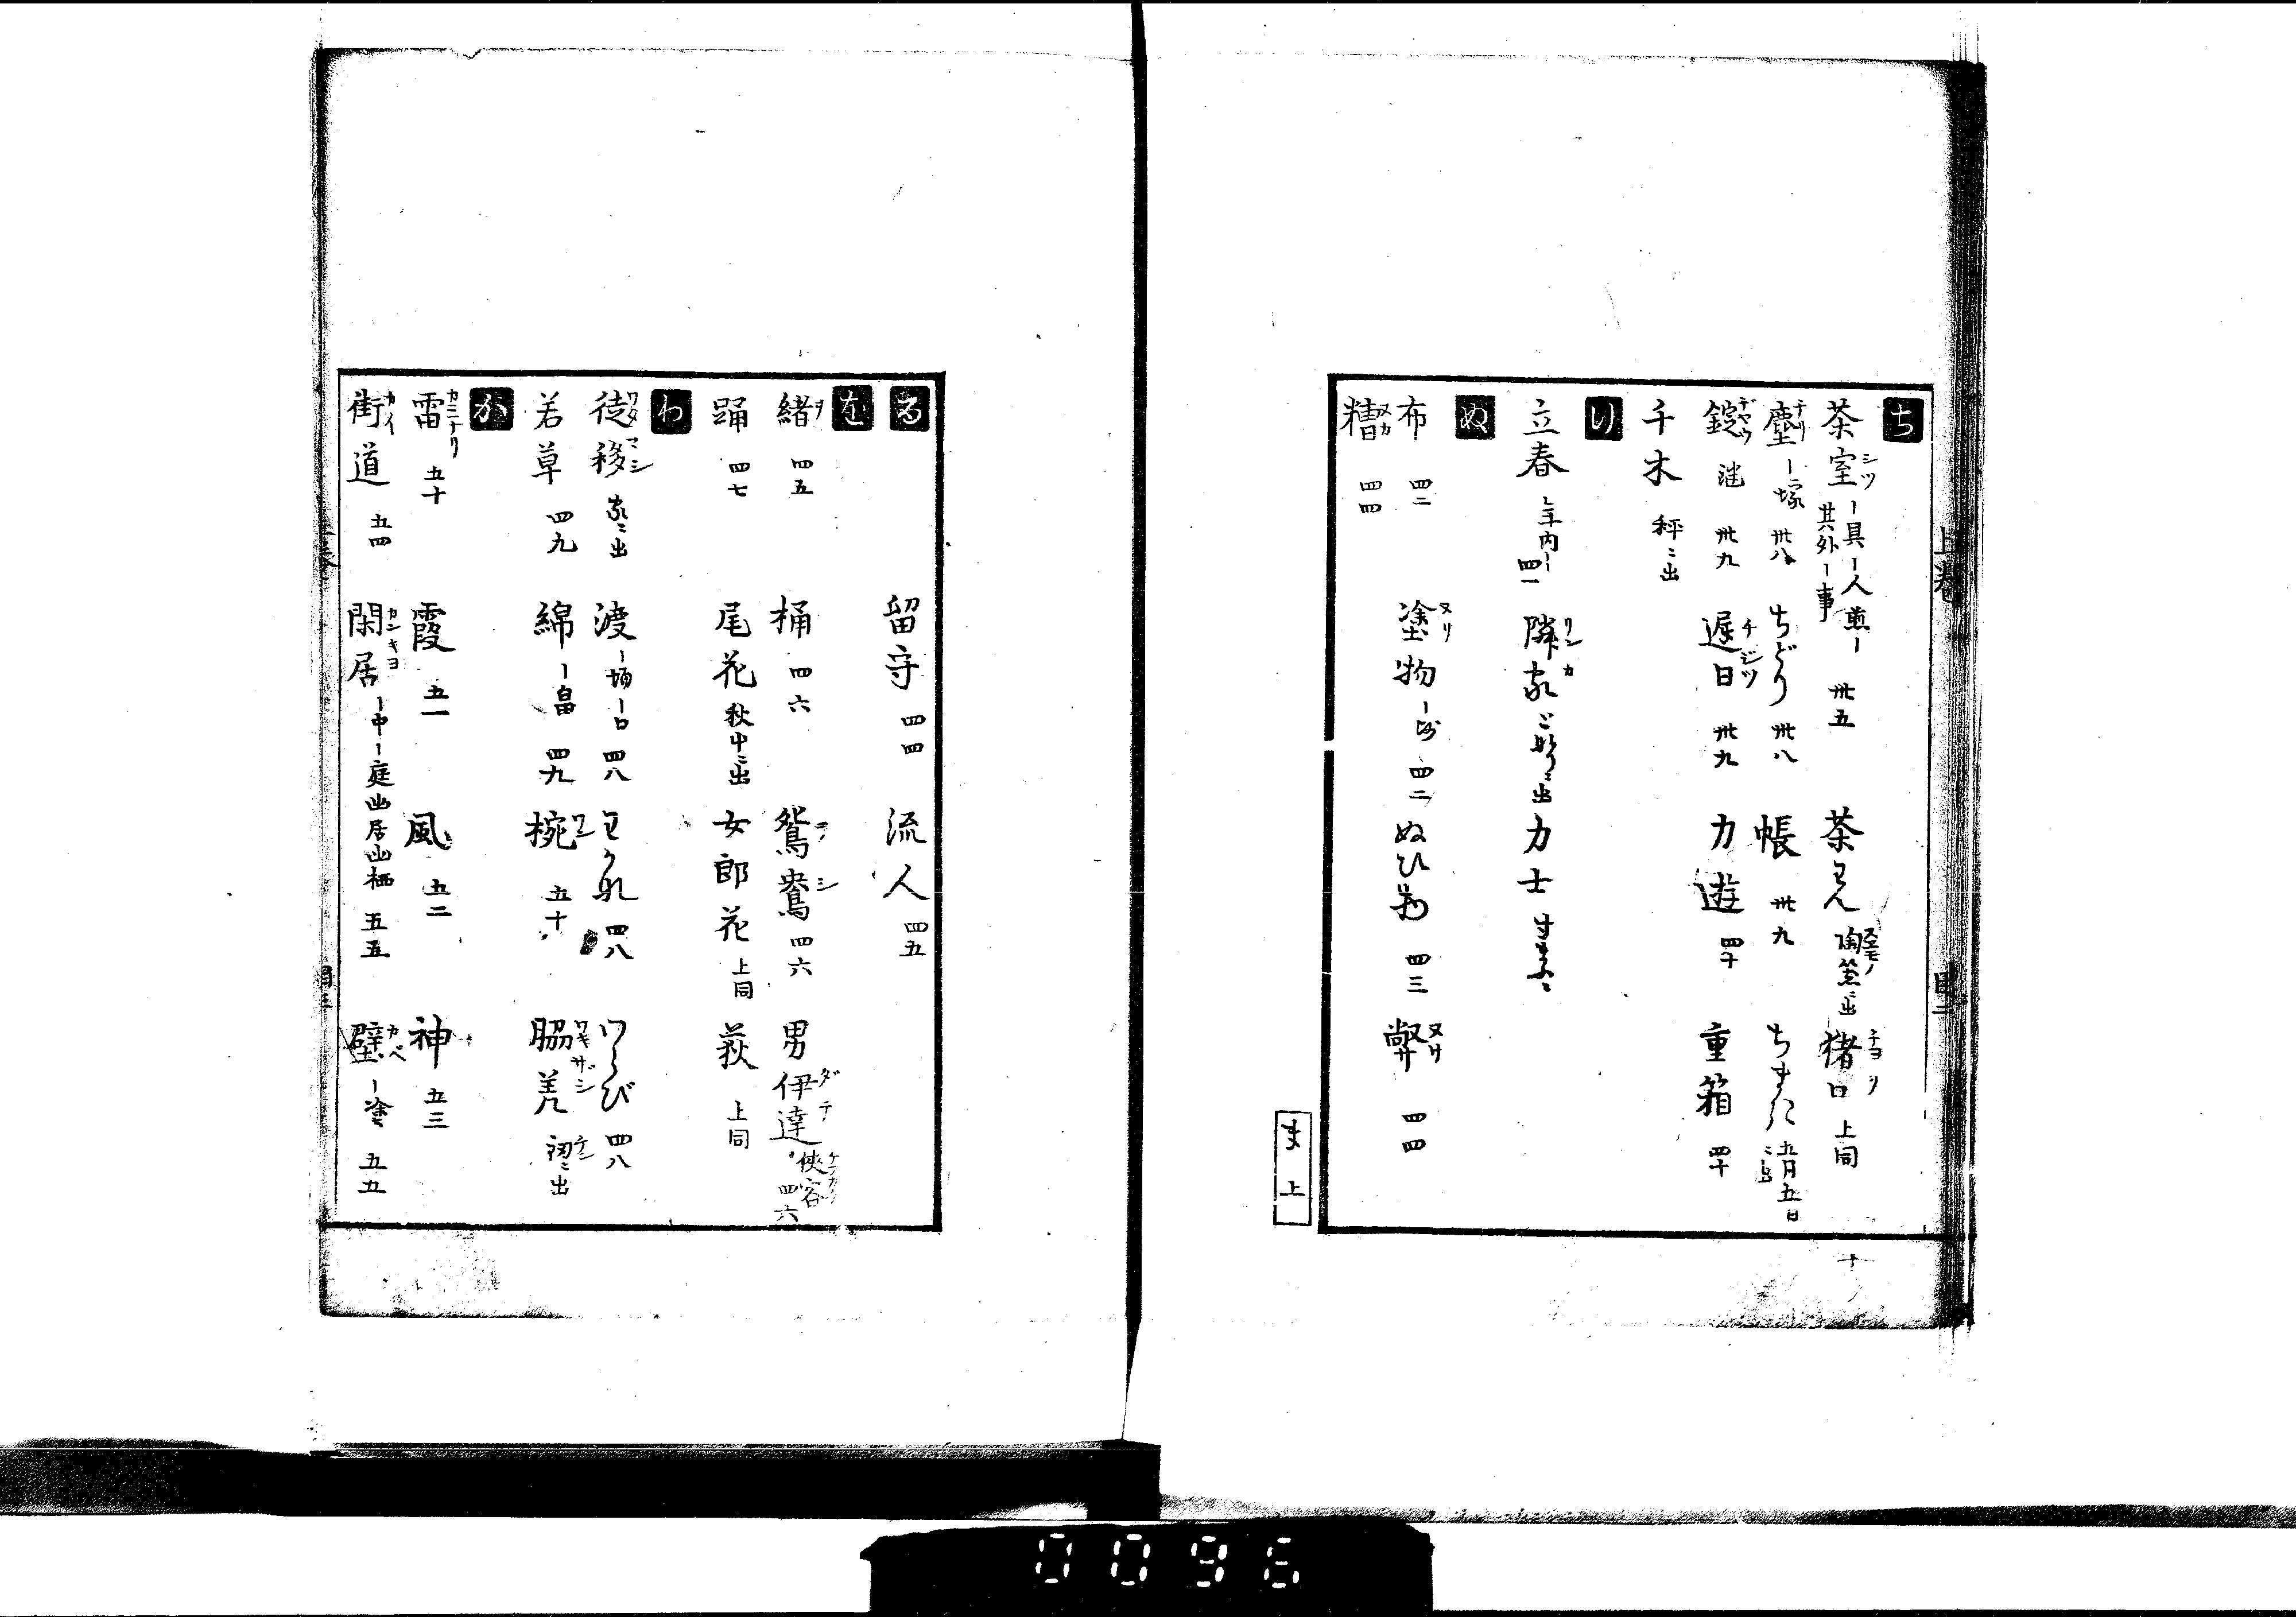 上巻
ち
茶室シツ ー具ー人煎ー 其外ー事 卅五 茶わん 陶箋ニ出 猪口チヨク 上同
塵チリ ー塚 卅八 ちどり 卅八 帳 卅九 ちまき 五月五日ニ出
錠ヂヤウ 卅九 遅日チジツ 卅九 力遊 四十 重箱 四十
千木 秤ニ出
り
立春 年内ー 四一 隣家リンカ となりニ出 力士 すまふニ
ぬ
布 四二 塗物ヌリ 四二 ぬひ物 四三 幣ヌサ 四四
糟ヌカ 四四
ま上
る
留守 四四 流人 四五
を
緒ヲ 四五 桶 四六 鴛鴦ヲシ 四六 男伊達ダテ 侠客 四六
踊 四七 尾花 秋中ニ出 女郎花 上同 萩 上同
わ
徒移ワタマシ 家ニ出 渡 ー場ー口 四八 わかれ 四八 わらび 四八
若草 四九 綿 ー畠 四九 椀ワン 五十 脇差ワキザシ ニ出
か
雷カミナリ 五十 霞 五一 風 五二 神 五三
街道カイ 五四 閑居カンキヨ ー中ー庭幽居山栖 五五 壁カベ ー塗 五五
0096